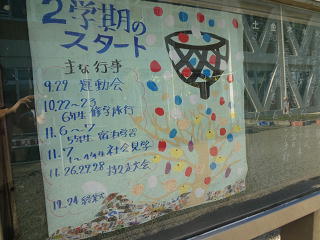 2学期の
スタート
主な行事
9.29 運動会
10.22~23
6年生 修学旅行
11.6~7
5年生 宿泊学習
11.7
1~4年生 社会見学
11.26.27.28 持久走大会
12.24 終業式
土 金 木